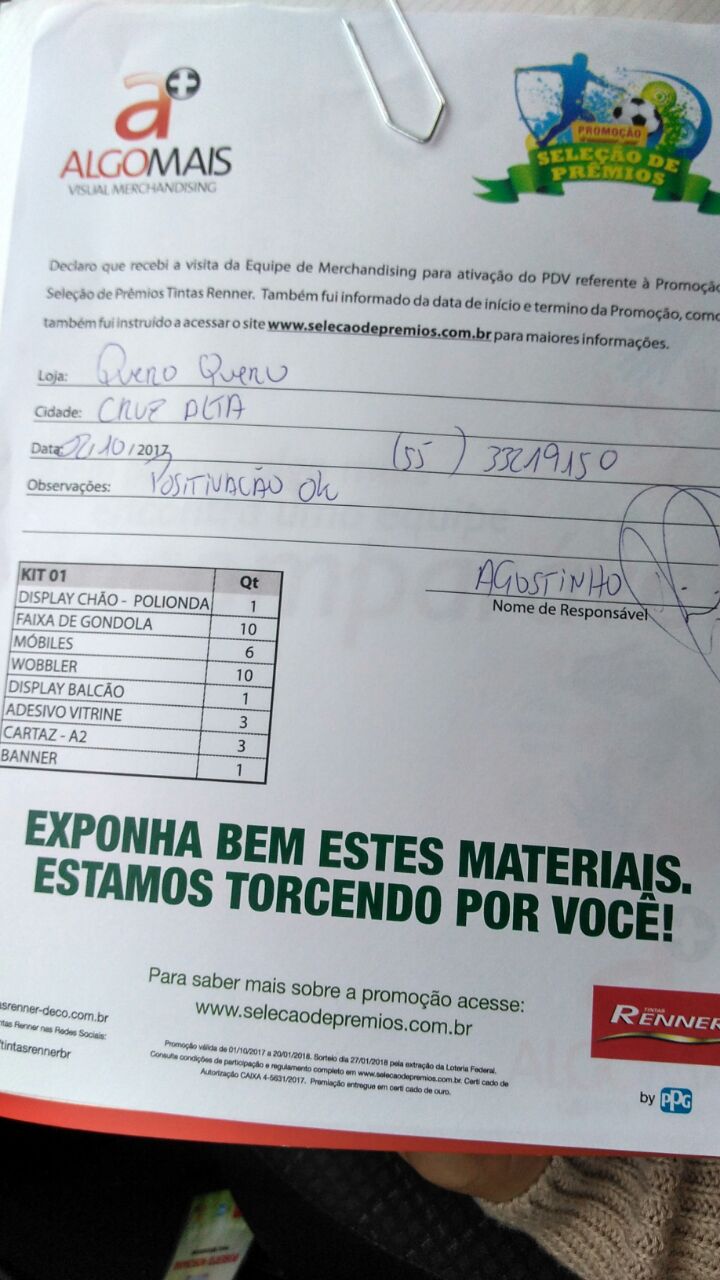 a+
ALGOMAIS
VISUAL MERCHANDISING
PROMOÇÃO
SELEÇÃO DE
PRÊMIOS
Declaro que recebi a visita da Equipe de Merchandising para ativação do PDV referente à Promoção
Seleção de Prêmios Tintas Renner. Também fui informado da data de início e termino da Promoção, como
também fui instruído a acessar o site www.selecaodepremios.com.br para maiores informações.
Loja: Quero Quero
Cidade: CRUZ ALTA
Data: 02/10/2017 (55) 33219150
Observações: POSITIVAÇÃO OK
AGOSTINHO
Nome de Responsável
KIT 01 Qt
DISPLAY CHÃO - POLIONDA 1
FAIXA DE GONDOLA 10
MÓBILES 6
WOBBLER 10
DISPLAY BALCÃO 1
ADESIVO VITRINE 3
CARTAZ - A2 3
BANNER 1
EXPONHA BEM ESTES MATERIAIS.
ESTAMOS TORCENDO POR VOCÊ!
Para saber mais sobre a promoção acesse:
www.selecaodepremios.com.br
srenner-deco.com.br
ntas Renner nas Redes Sociais:
/tintasrennerbr
Promoção válida de 01/10/2017 a 20/01/2018. Sorteio dia 27/01/2018 pela extração da Loteria Federal.
Consulte condições de participação e regulamento completo em www.selecaodepremios.com.br. Certi cado de
Autorização CAIXA 4-5631/2017. Premiação entregue em certi cado de ouro.
TINTAS
RENNER
by PPG